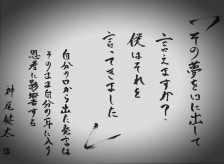 その夢を口に出して
言えますか?
僕はそれを
言ってきました
自分の口から出た発言は
そのまま自分の耳に入り
思考に影響する